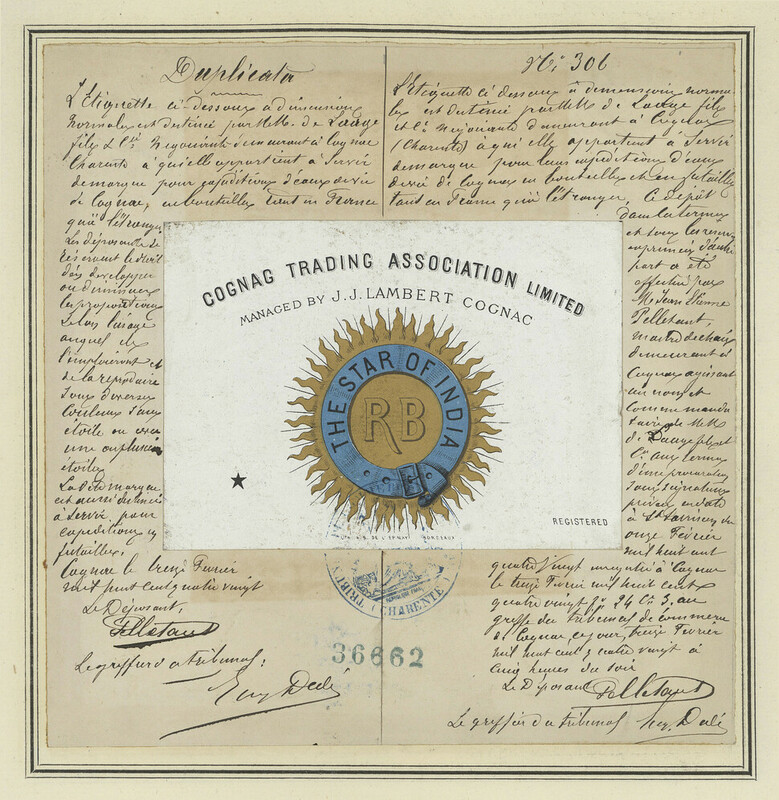 Duplicata
L'Etiquette ci-dessous a dimensions
normales est destinée par MM. de Laage
fils & Cie Négociants demeurant à Cognac
Charente à qu'elle appartient à Servir
de marque pour expéditions d'eaux de vie
de Cognac, en bouteilles tant en France
qu'à l'étranger
Les déposants se
réservent le droit
d'en développer
ou diminuer
les proportions
selon l'usage
auquel ils
l'emploieront et
de la reproduire
sous diverses
couleurs sans
étoile ou avec
une ou plusieurs
étoiles
La dite marque
est aussi destinée
à Servir pour
expéditions en
futailles,
Cognac le treize Février
mil huit cent quatre vingt
Le Déposant,
Pelletant
Le greffier du tribunal:
No 306
L'Etiquette ci dessous a dimensions norma-
les est destinée par MM de Laage fils
et Cie Négociants demeurant à Cognac
(Charente) à qui elle appartient à Servir
de marque pour leurs expéditions d'eaux
de vie de Cognac en bouteilles et en futailles
tant en France qu'à l'étranger, Ce dépôt
dans la forme
et sous les réserves
exprimées d'autre
part a été
effectué par
M. Jean Etienne
Pelletant,
maître de chais
demeurant à
Cognac agissant
au nom et
comme manda
taire de MM
de Laage fils et
Cie aux termes
d'une procuration
sous signatures
privées en date
à St Savinien du
onze Février
mil huit cent
quatre vingt enregistré à Cognac
le treize Février mil huit cent
quatre vingt fo 24 Co 3, au
greffe du tribunal de commerce
de Cognac ce jour, treize Février
mil huit cent quatre vingt à
cinq heures du soir
Le Déposant Pelletant
Le greffier du tribunal
COGNAG TRADING ASSOCIATION LIMITED
MANAGED BY J.J. LAMBERT COGNAC
THE STAR OF INDIA
RB
REGISTERED
BORDEAUX
(CHARENTE)
36662